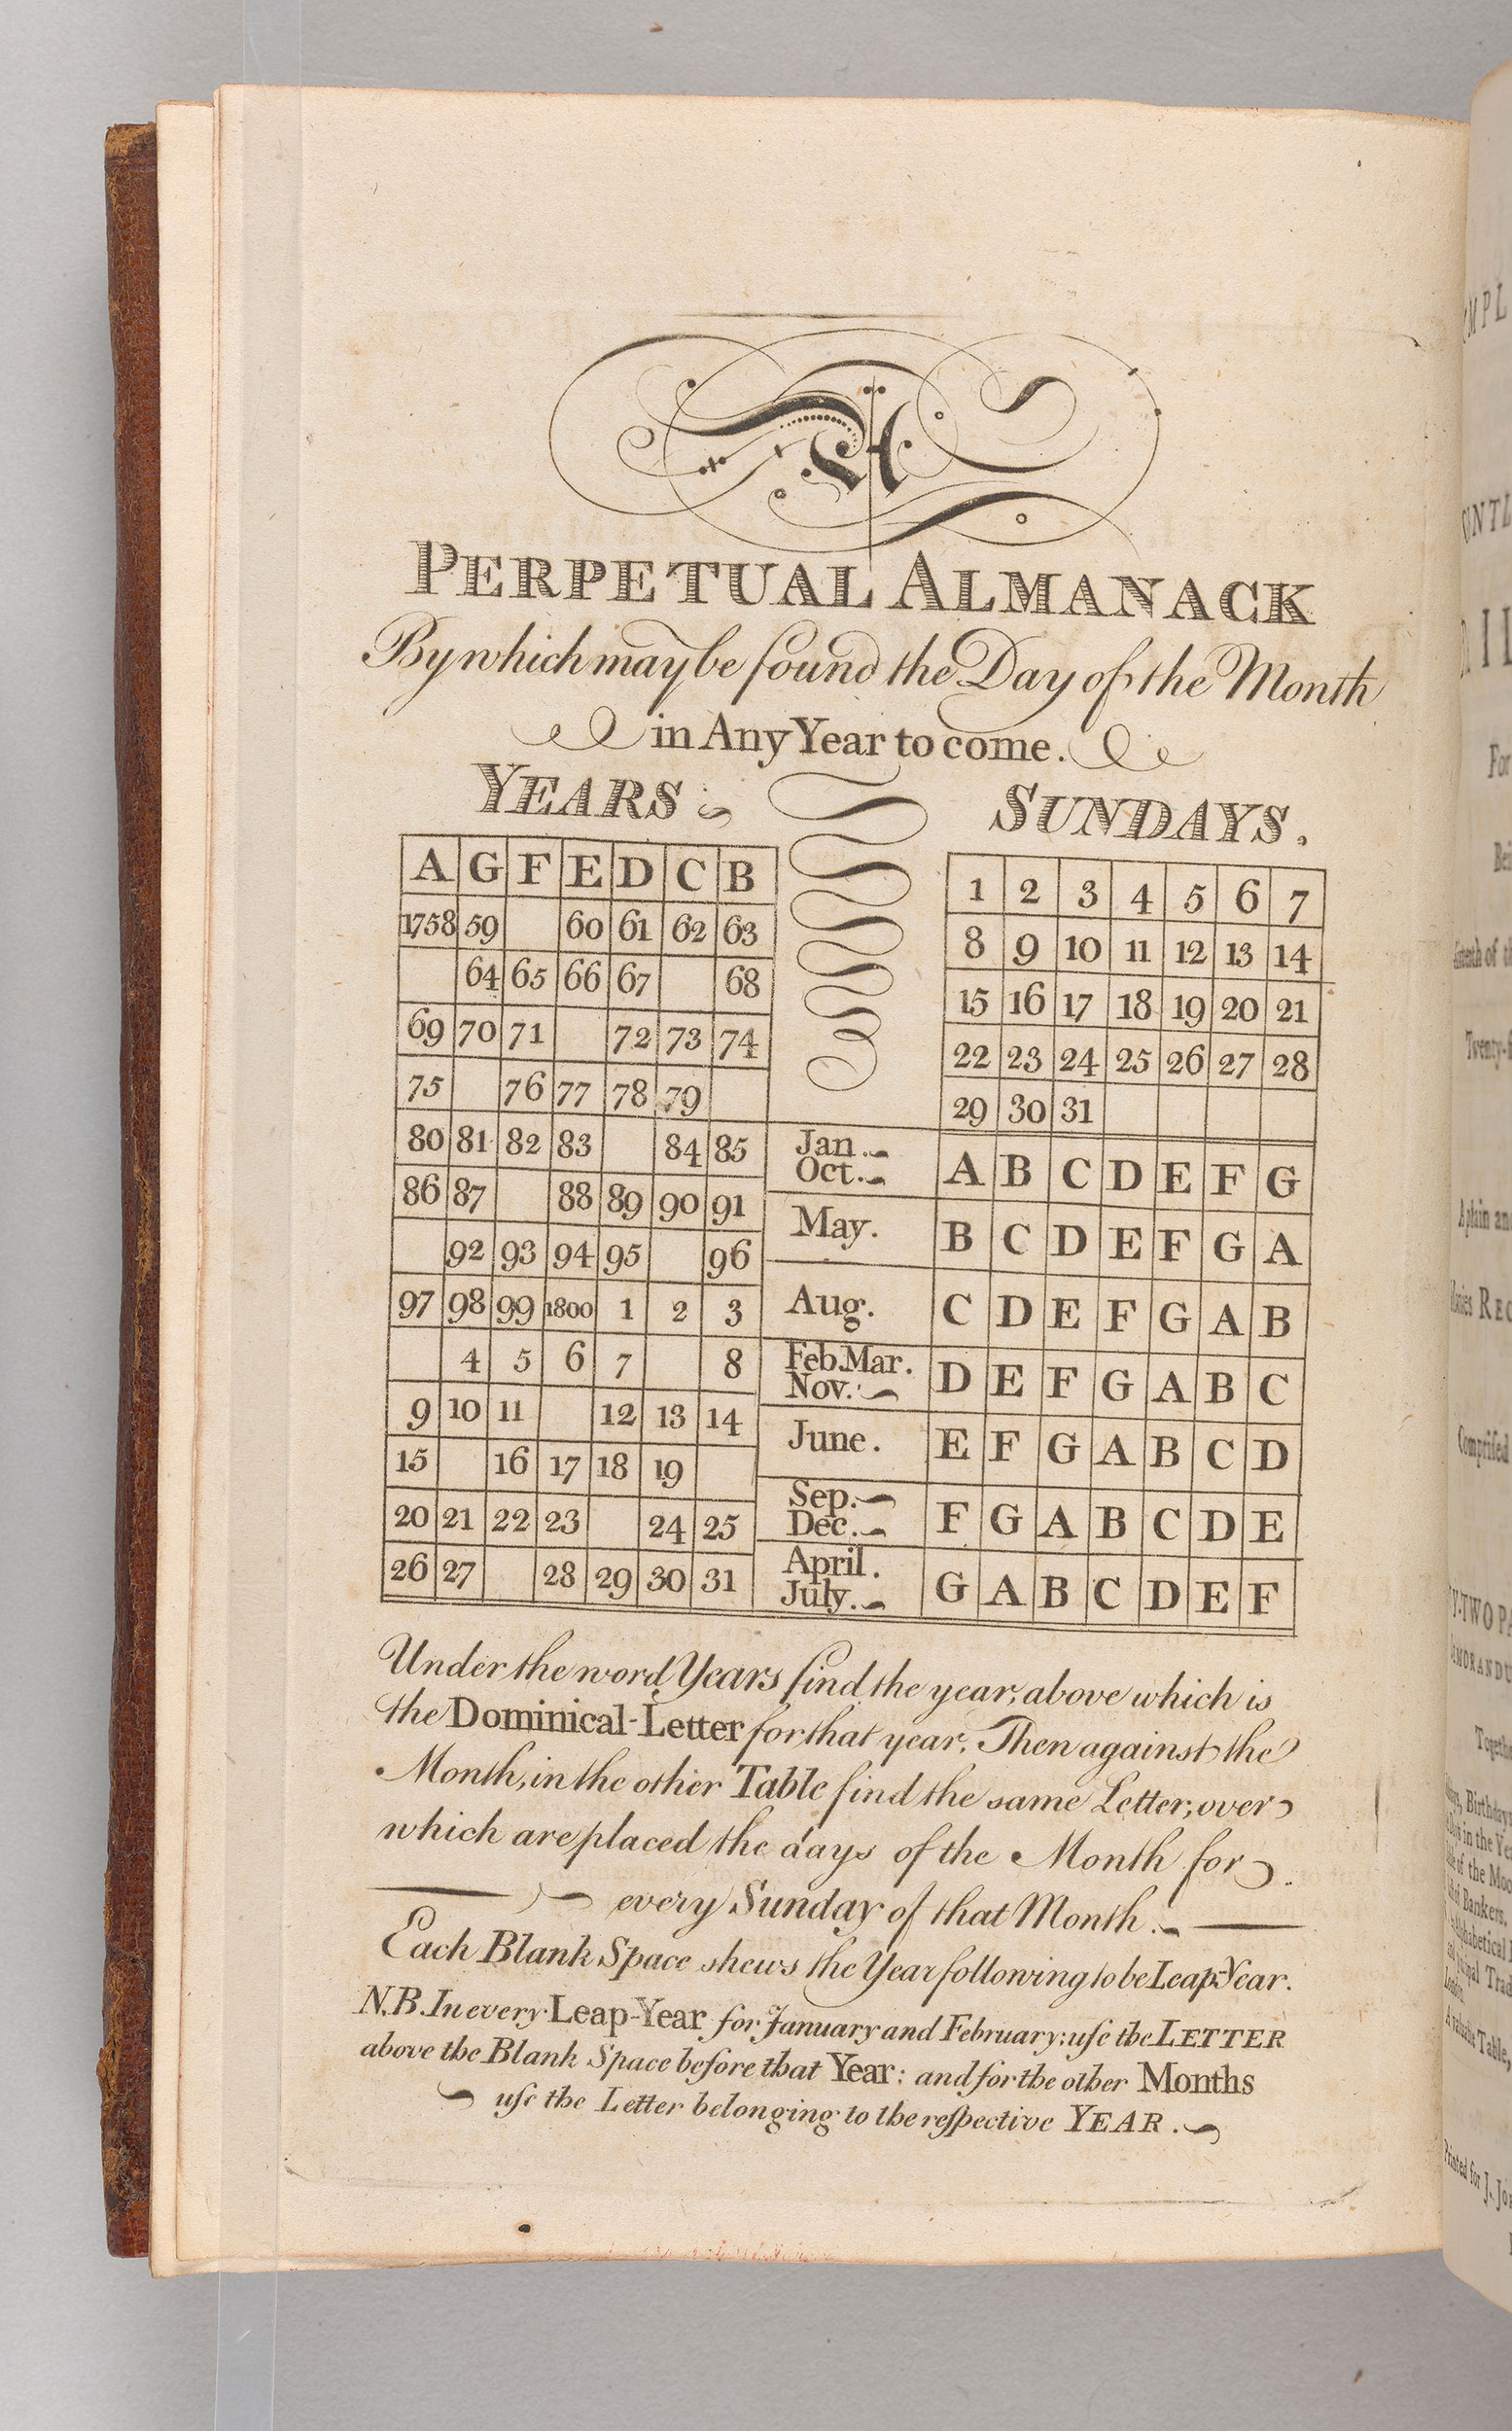 A
PERPETUAL ALMANACK
By which may be found the Day of the Month
in Any Year to come.
YEARS
SUNDAYS.
A G F E D C B
1758 59 60 61 62 63
64 65 66 67 68
69 70 71 72 73 74
75 76 77 78 79
80 81 82 83 84 85
86 87 88 89 90 91
92 93 94 95 96
97 98 99 1800 1 2 3
4 5 6 7 8
9 10 11 12 13 14
15 16 17 18 19
20 21 22 23 24 25
26 27 28 29 30 31
1 2 3 4 5 6 7
8 9 10 11 12 13 14
15 16 17 18 19 20 21
22 23 24 25 26 27 28
29 30 31
Jan. Oct. A B C D E F G
May. B C D E F G A
Aug. C D E F G A B
Feb. Mar. Nov. D E F G A B C
June. E F G A B C D
Sep. Dec. F G A B C D E
April. July. G A B C D E F
Under the word Years find the year, above which is
the Dominical-Letter for that year. Then against the
Month, in the other Table find the same Letter; over
which are placed the days of the Month for
every Sunday of that Month.
Each Blank Space shews the Year following to be Leap-Year.
N.B. In every Leap-Year for January and February: uſe the LETTER
above the Blank Space before that Year: and for the other Months
uſe the Letter belonging to the reſpective YEAR.
For
of th
Twenty-f
A plain an
REC
Compriſed
Y-TWO PA
Togethe
Birthdays
in the Ye
of the Moo
of Bankers.
Trad
London.
Table,
Printed for J. Jo